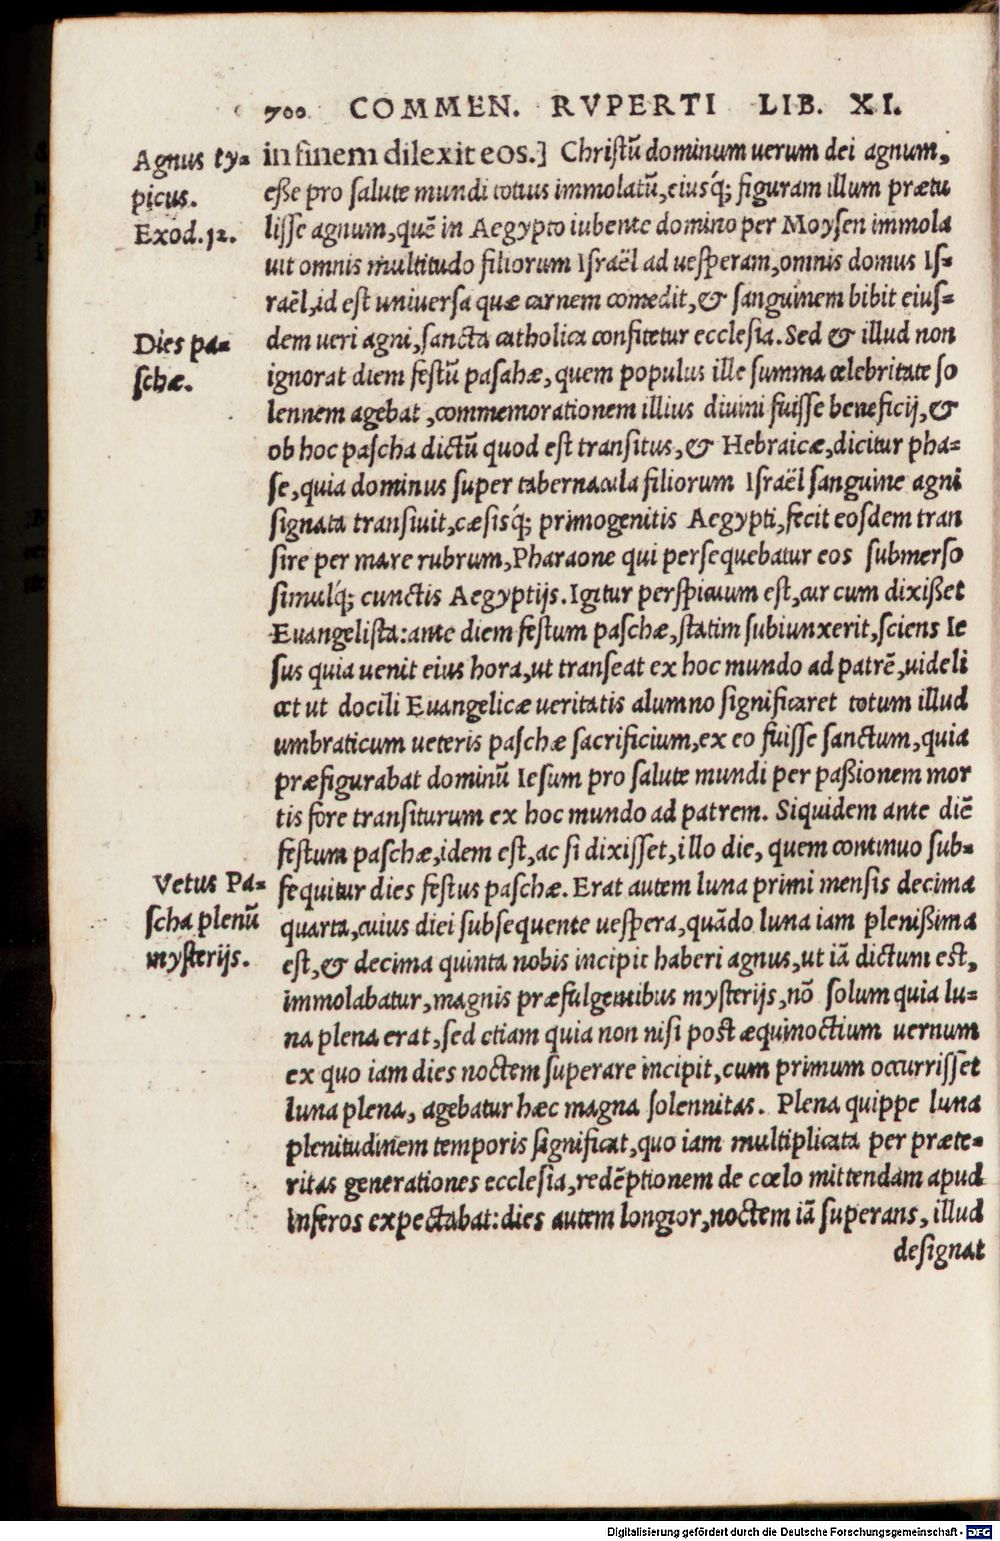 700 COMMEN. RVPERTI LIB. XI.
Agnus ty-
picus.
Exod.12.
Dies pa-
ſchæ.
Vetus Pa-
ſcha plenũ
myſterijs.
in finem dilexit eos.] Chriſtũ dominum uerum dei agnum,
eſſe pro ſalute mundi totius immolatũ, eiusq́; figuram illum prætu
liſſe agnum, quẽ in Aegypto iubente domino per Moyſen immola
uit omnis multitudo filiorum Iſraël ad ueſperam, omnis domus Iſ-
raël, id eſt uniuerſa quæ carnem comedit, & ſanguinem bibit eiuſ-
dem ueri agni, ſancta catholica confitetur eccleſia. Sed & illud non
ignorat diem feſtũ paſahæ, quem populus ille ſumma celebritate ſo
lennem agebat, commemorationem illius diuini fuiſſe beneficij, &
ob hoc paſcha dictũ quod eſt tranſitus, & Hebraicæ, dicitur pha-
ſe, quia dominus ſuper tabernacula filiorum Iſraël ſanguine agni
ſignata tranſiuit, cæſisq́; primogenitis Aegypti, fecit eoſdem tran
ſire per mare rubrum, Pharaone qui perſequebatur eos ſubmerſo
ſimulq́; cunctis Aegyptijs. Igitur perſpicuum eſt, cur cum dixiſſet
Euangeliſta: ante diem feſtum paſchæ, ſtatim ſubiunxerit, ſciens Ie
ſus quia uenit eius hora, ut tranſeat ex hoc mundo ad patrẽ, uideli
cet ut docili Euangelicæ ueritatis alumno ſignificaret totum illud
umbraticum ueteris paſchæ ſacrificium, ex eo fuiſſe ſanctum, quia
præfigurabat dominũ Ieſum pro ſalute mundi per paſſionem mor
tis fore tranſiturum ex hoc mundo ad patrem. Siquidem ante diẽ
feſtum paſchæ, idem eſt, ac ſi dixiſſet, illo die, quem continuo ſub-
ſequitur dies feſtus paſchæ. Erat autem luna primi menſis decima
quarta, cuius diei ſubſequente ueſpera, quãdo luna iam pleniſſima
eſt, & decima quinta nobis incipit haberi agnus, ut iã dictum eſt,
immolabatur, magnis præfulgentibus myſterijs, nõ ſolum quia lu-
na plena erat, ſed etiam quia non niſi poſt æquinoctium uernum
ex quo iam dies noctem ſuperare incipit, cum primum occurriſſet
luna plena, agebatur hæc magna ſolennitas. Plena quippe luna
plenitudinem temporis ſignificat, quo iam multiplicata per præte-
ritas generationes eccleſia, redẽptionem de cœlo mittendam apud
inferos expectabat: dies autem longior, noctem iã ſuperans, illud
deſignat
Digitalisierung gefördert durch die Deutsche Forschungsgemeinschaft - DFG